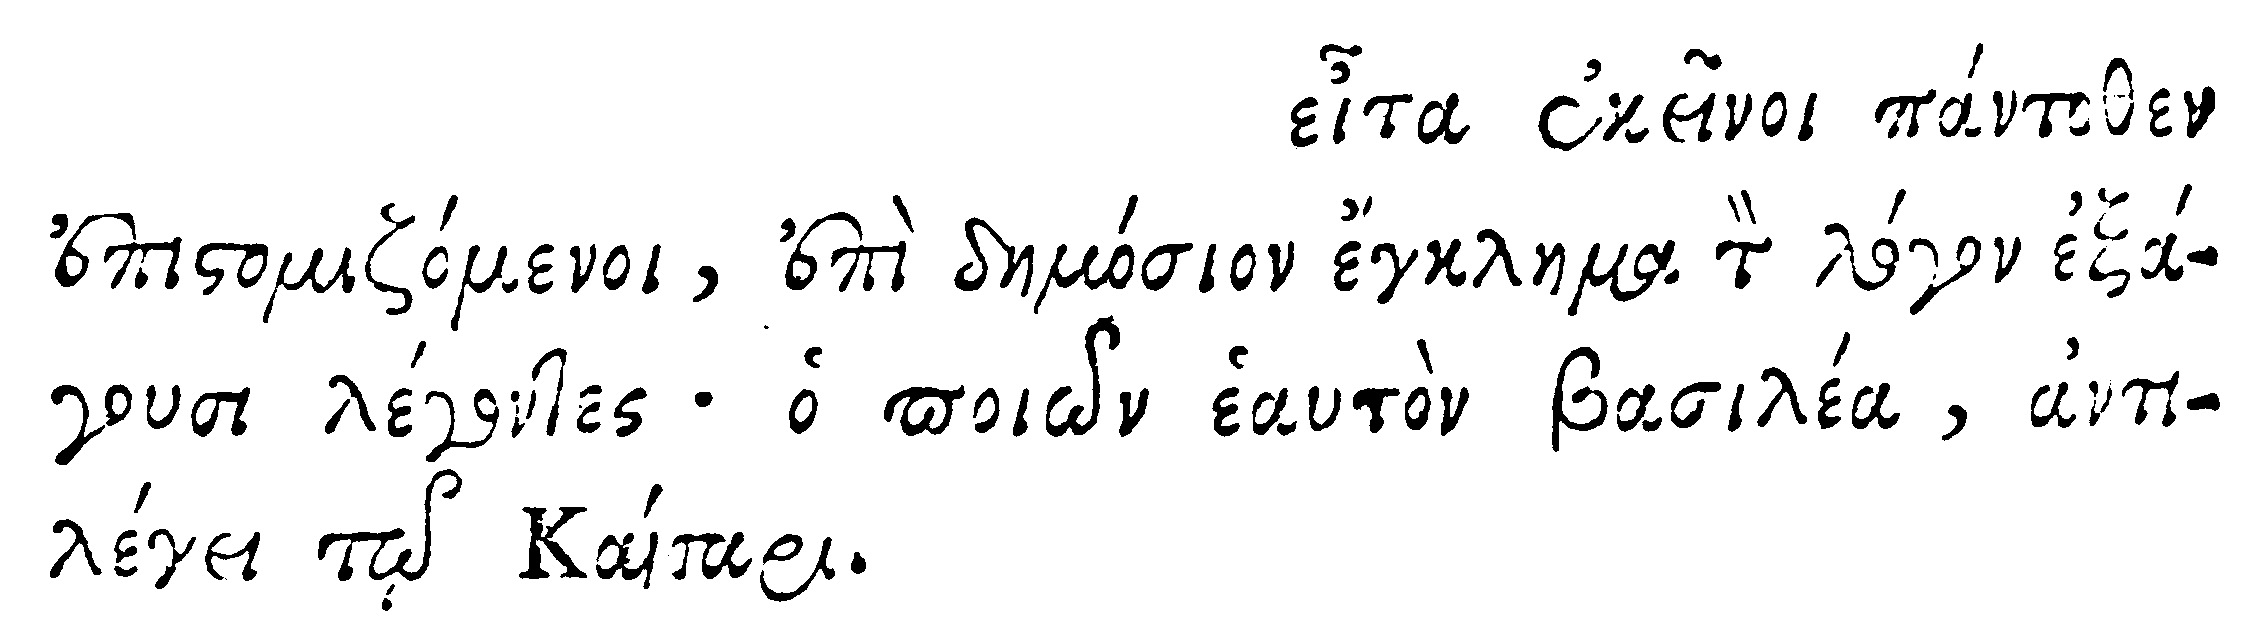 εἶτα ἐκεῖνοι πάντοθεν
ἐπιστομιζόμενοι, ἐπὶ δημόσιον ἔγκλημα τὸν λόγον ἐξά-
γουσι λέγοντες· ὁ ποιῶν ἑαυτὸν βασιλέα, ἀντι-
λέγει τῷ Καίσαρι.